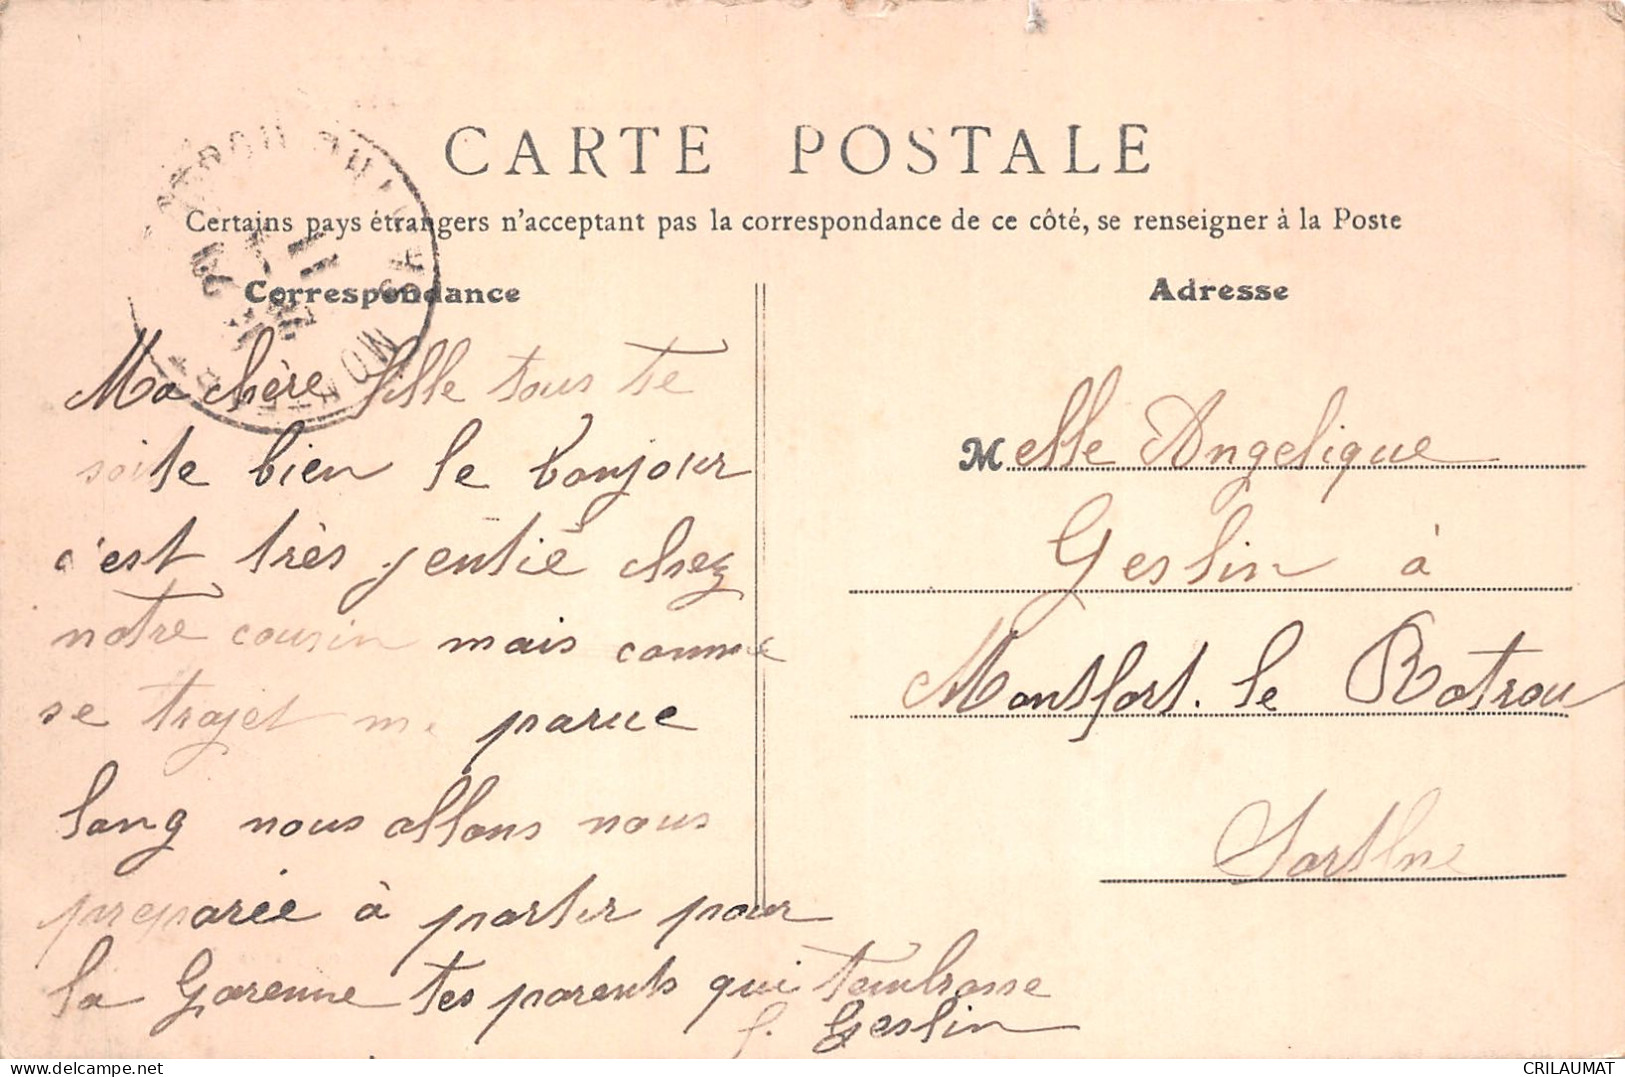 CARTE POSTALE
Certains pays étrangers n'acceptant pas la correspondance de ce côté, se renseigner à la Poste
Correspondance
Adresse
Ma chère fille tous te
soite bien le bonjour
c'est très jentie chez
notre cousin mais comme
se trajet me parue
long nous allons nous
preparée à partir pour
la Garenne tes parents qui tembrasse
Geslin
Melle Angelique
Geslin à
Montfort. le Rotrou
Sarthe
CRILAUMAT